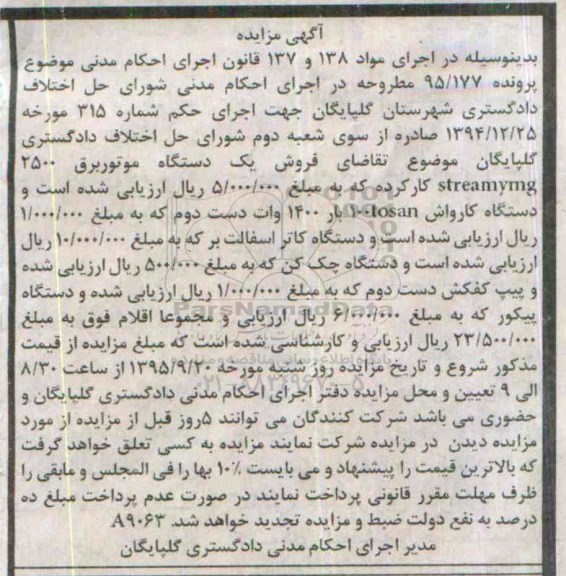 آگهی مزایده
بدینوسیله در اجرای مواد ۱۳۸ و ۱۳۷ قانون اجرای احکام مدنی موضوع
پرونده ۹۵/۱۷۷ مطروحه در اجرای احکام مدنی شورای حل اختلاف
دادگستری شهرستان گلپایگان جهت اجرای حکم شماره ۳۱۵ مورخه
۱۳۹۴/۱۲/۲۵ صادره از سوی شعبه دوم شورای حل اختلاف دادگستری
گلپایگان موضوع تقاضای فروش یک دستگاه موتوربرق ۲۵۰۰
streamymg کارکرده که به مبلغ ۵/۰۰۰/۰۰۰ ریال ارزیابی شده است و
دستگاه کارواش ۱۰۰tosan بار ۱۴۰۰ وات دست دوم که به مبلغ ۱/۰۰۰/۰۰۰
ریال ارزیابی شده است و دستگاه کاتر اسفالت بر که به مبلغ ۱۰/۰۰۰/۰۰۰ ریال
ارزیابی شده است و دستگاه چک کن که به مبلغ ۵۰۰/۰۰۰ ریال ارزیابی شده
و پیپ کفکش دست دوم که به مبلغ ۱/۰۰۰/۰۰۰ ریال ارزیابی شده و دستگاه
پیکور که به مبلغ ۶/۰۰۰/۰۰۰ ریال ارزیابی و مجموعا اقلام فوق به مبلغ
۲۳/۵۰۰/۰۰۰ ریال ارزیابی و کارشناسی شده است که مبلغ مزایده از قیمت
مذکور شروع و تاریخ مزایده روز شنبه مورخه ۱۳۹۵/۹/۲۰ از ساعت ۸/۳۰
الی ۹ تعیین و محل مزایده دفتر اجرای احکام مدنی دادگستری گلپایگان و
حضوری می باشد شرکت کنندگان می توانند ۵روز قبل از مزایده از مورد
مزایده دیدن در مزایده شرکت نمایند مزایده به کسی تعلق خواهد گرفت
که بالاترین قیمت را پیشنهاد و می بایست ۱۰٪ بها را فی المجلس و مابقی را
ظرف مهلت مقرر قانونی پرداخت نمایند در صورت عدم پرداخت مبلغ ده
درصد به نفع دولت ضبط و مزایده تجدید خواهد شد. A۹۰۶۳
مدیر اجرای احکام مدنی دادگستری گلپایگان
ParsNamadData
۰۲۱-۸۸۳۴۹۶۷۰-۵